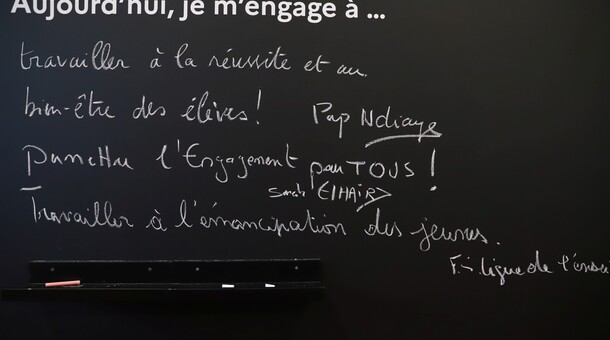 Aujourd'hui, je m'engage à ...
travailler à la réussite et au
bien-être des élèves !
Pap Ndiaye
Permettre l'Engagement pour TOUS !
Sarah El HAIRY
Travailler à l'émancipation des jeunes.
ligue de l'ensei